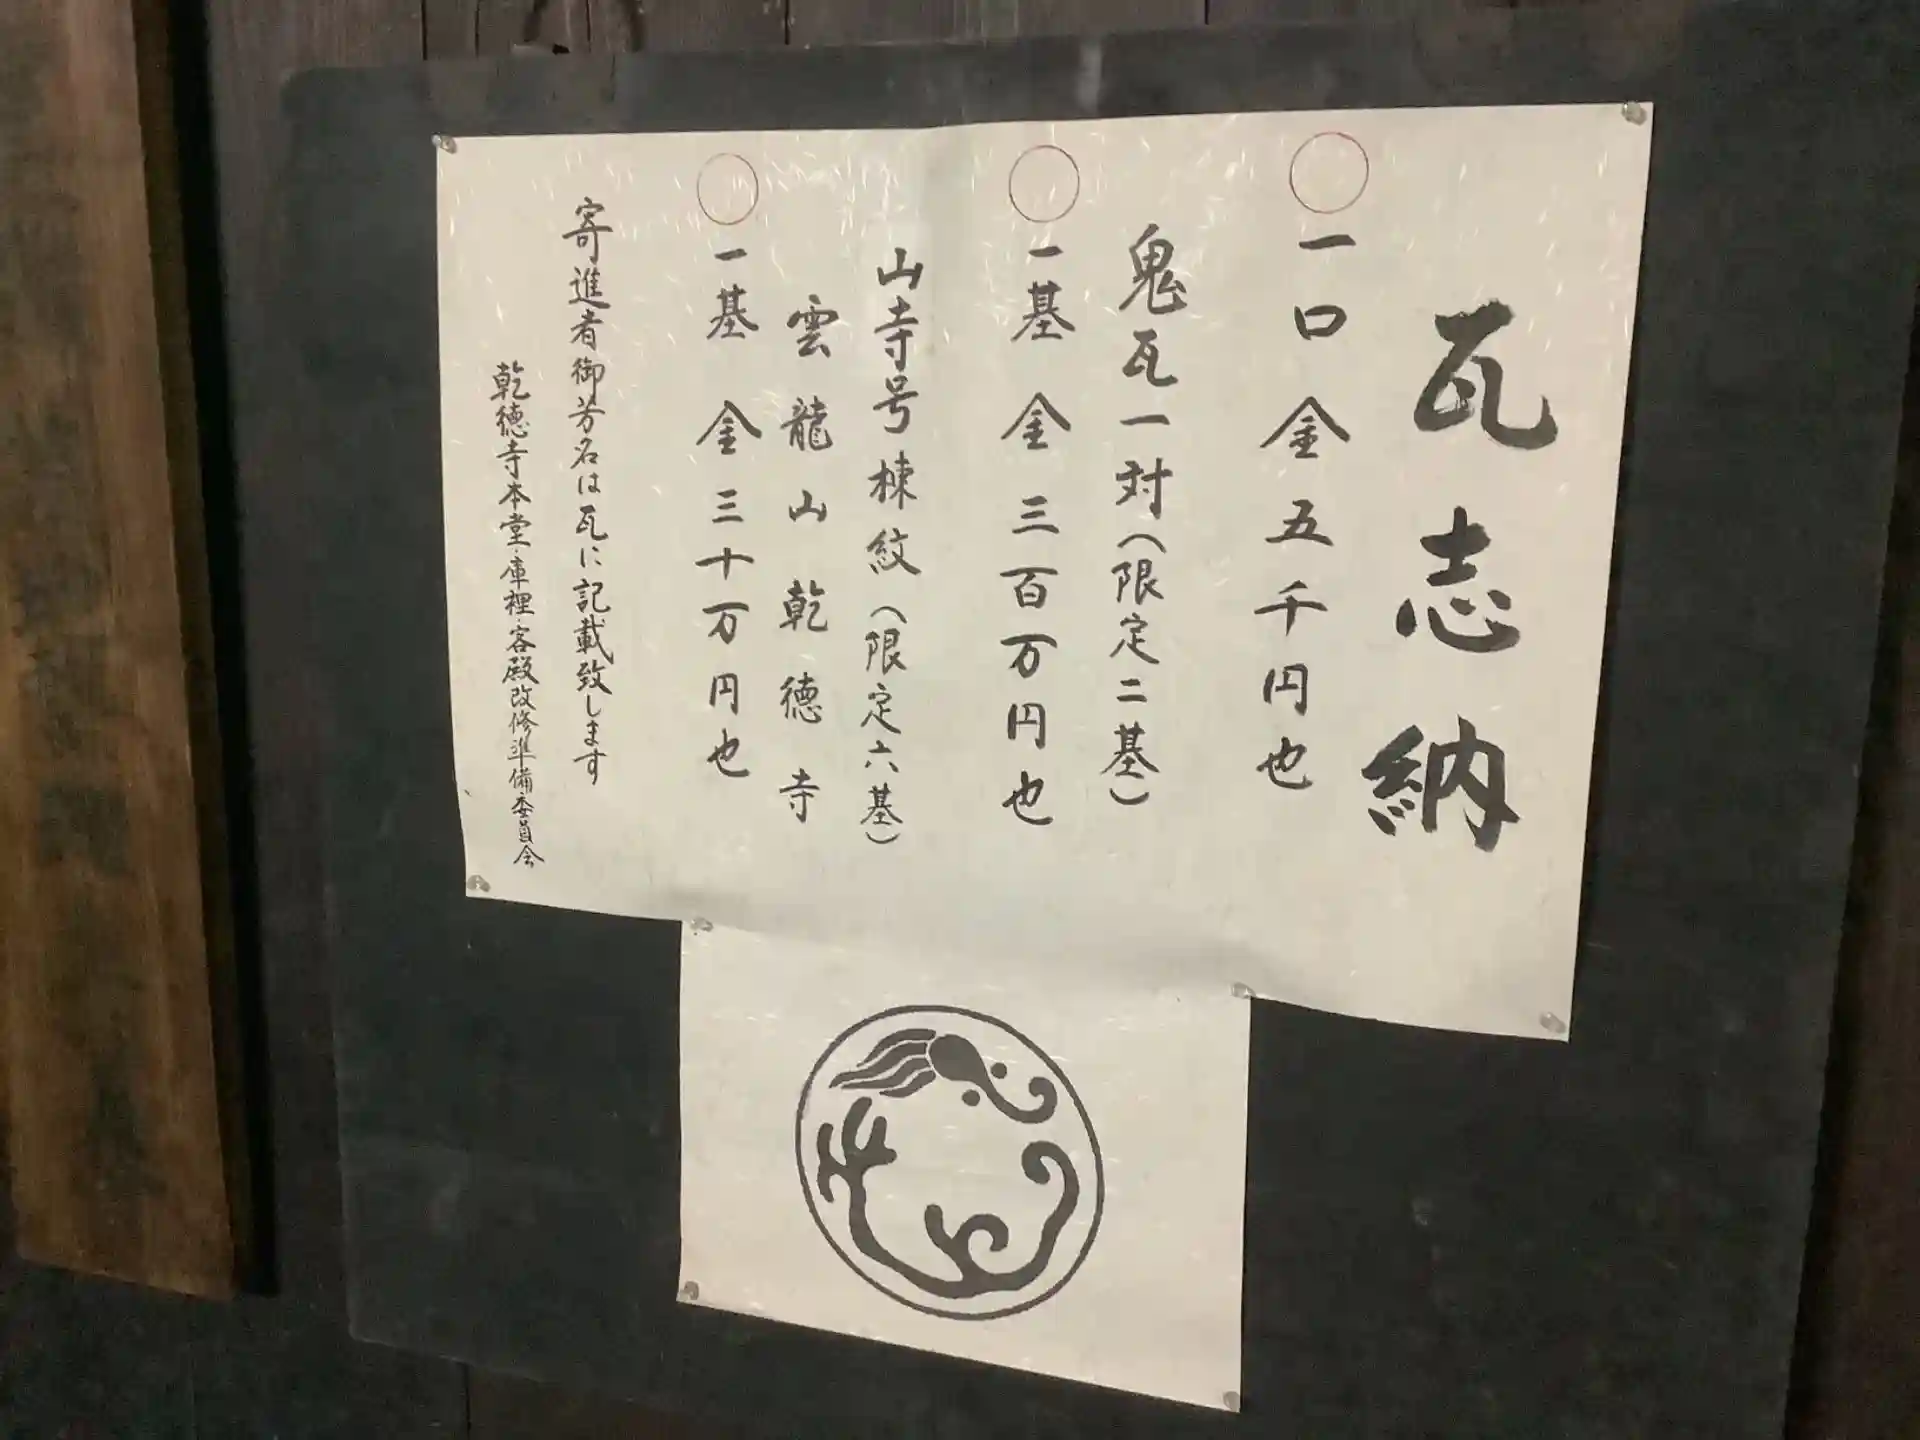 瓦志納
○一口 金五千円也
鬼瓦一対(限定二基)
○一基 金三百万円也
山寺号棟紋(限定六基)
雲龍山乾徳寺
○一基 金三十万円也
寄進者御芳名は瓦に記載致します
乾徳寺本堂・庫裡・客殿改修準備委員会